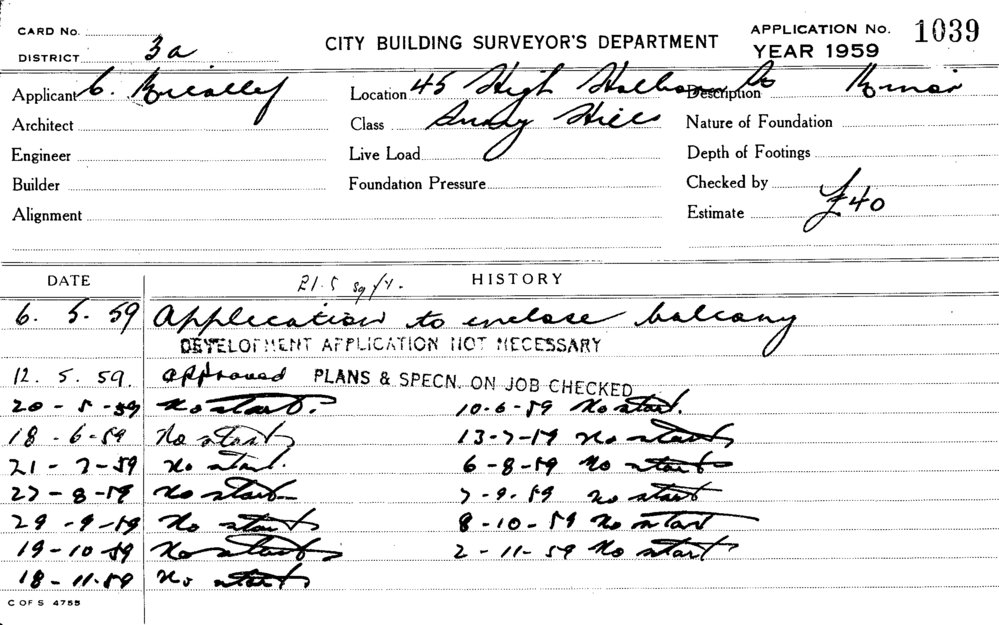 CARD No.
DISTRICT 3a
CITY BUILDING SURVEYOR'S DEPARTMENT
APPLICATION No. 1039
YEAR 1959
Applicant C.
Location 45 High Holborn St
Description Brick
Architect
Class Surry Hills
Nature of Foundation
Engineer
Live Load
Depth of Footings
Builder
Foundation Pressure
Checked by
Alignment
Estimate £40
DATE
HISTORY
21.5 sq ft.
6. 5. 59 Application to enclose balcony
DEVELOPMENT APPLICATION NOT NECESSARY
12. 5. 59. approved PLANS & SPECN. ON JOB CHECKED
20 - 5 - 59 No start. 10-6-59 No start.
18 - 6-59 No start 13-7-59 No start
21 - 7-59 No start. 6-8-59 No start
27-8-59 No start 7-9-59 No start
29 -9-59 No start 8-10-59 No start
19-10-59 No start 2-11-59 No start
18-11-59 No start
C OF S 4755